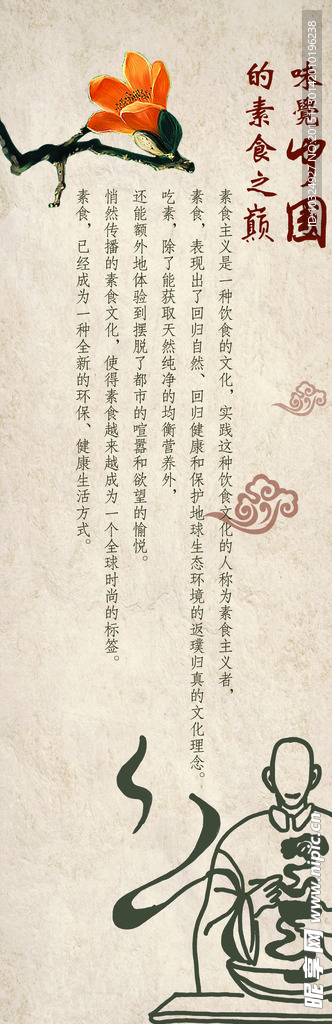 味覺中國
的素食之巅
素食主义是一种饮食的文化，实践这种饮食文化的人称为素食主义者，
素食，表现出了回归自然、回归健康和保护地球生态环境的返璞归真的文化理念。
吃素，除了能获取天然纯净的均衡营养外，
还能额外地体验到摆脱了都市的喧嚣和欲望的愉悦。
悄然传播的素食文化，使得素食越来越成为一个全球时尚的标签。
素食，已经成为一种全新的环保、健康生活方式。
昵享网 www.nipic.cn